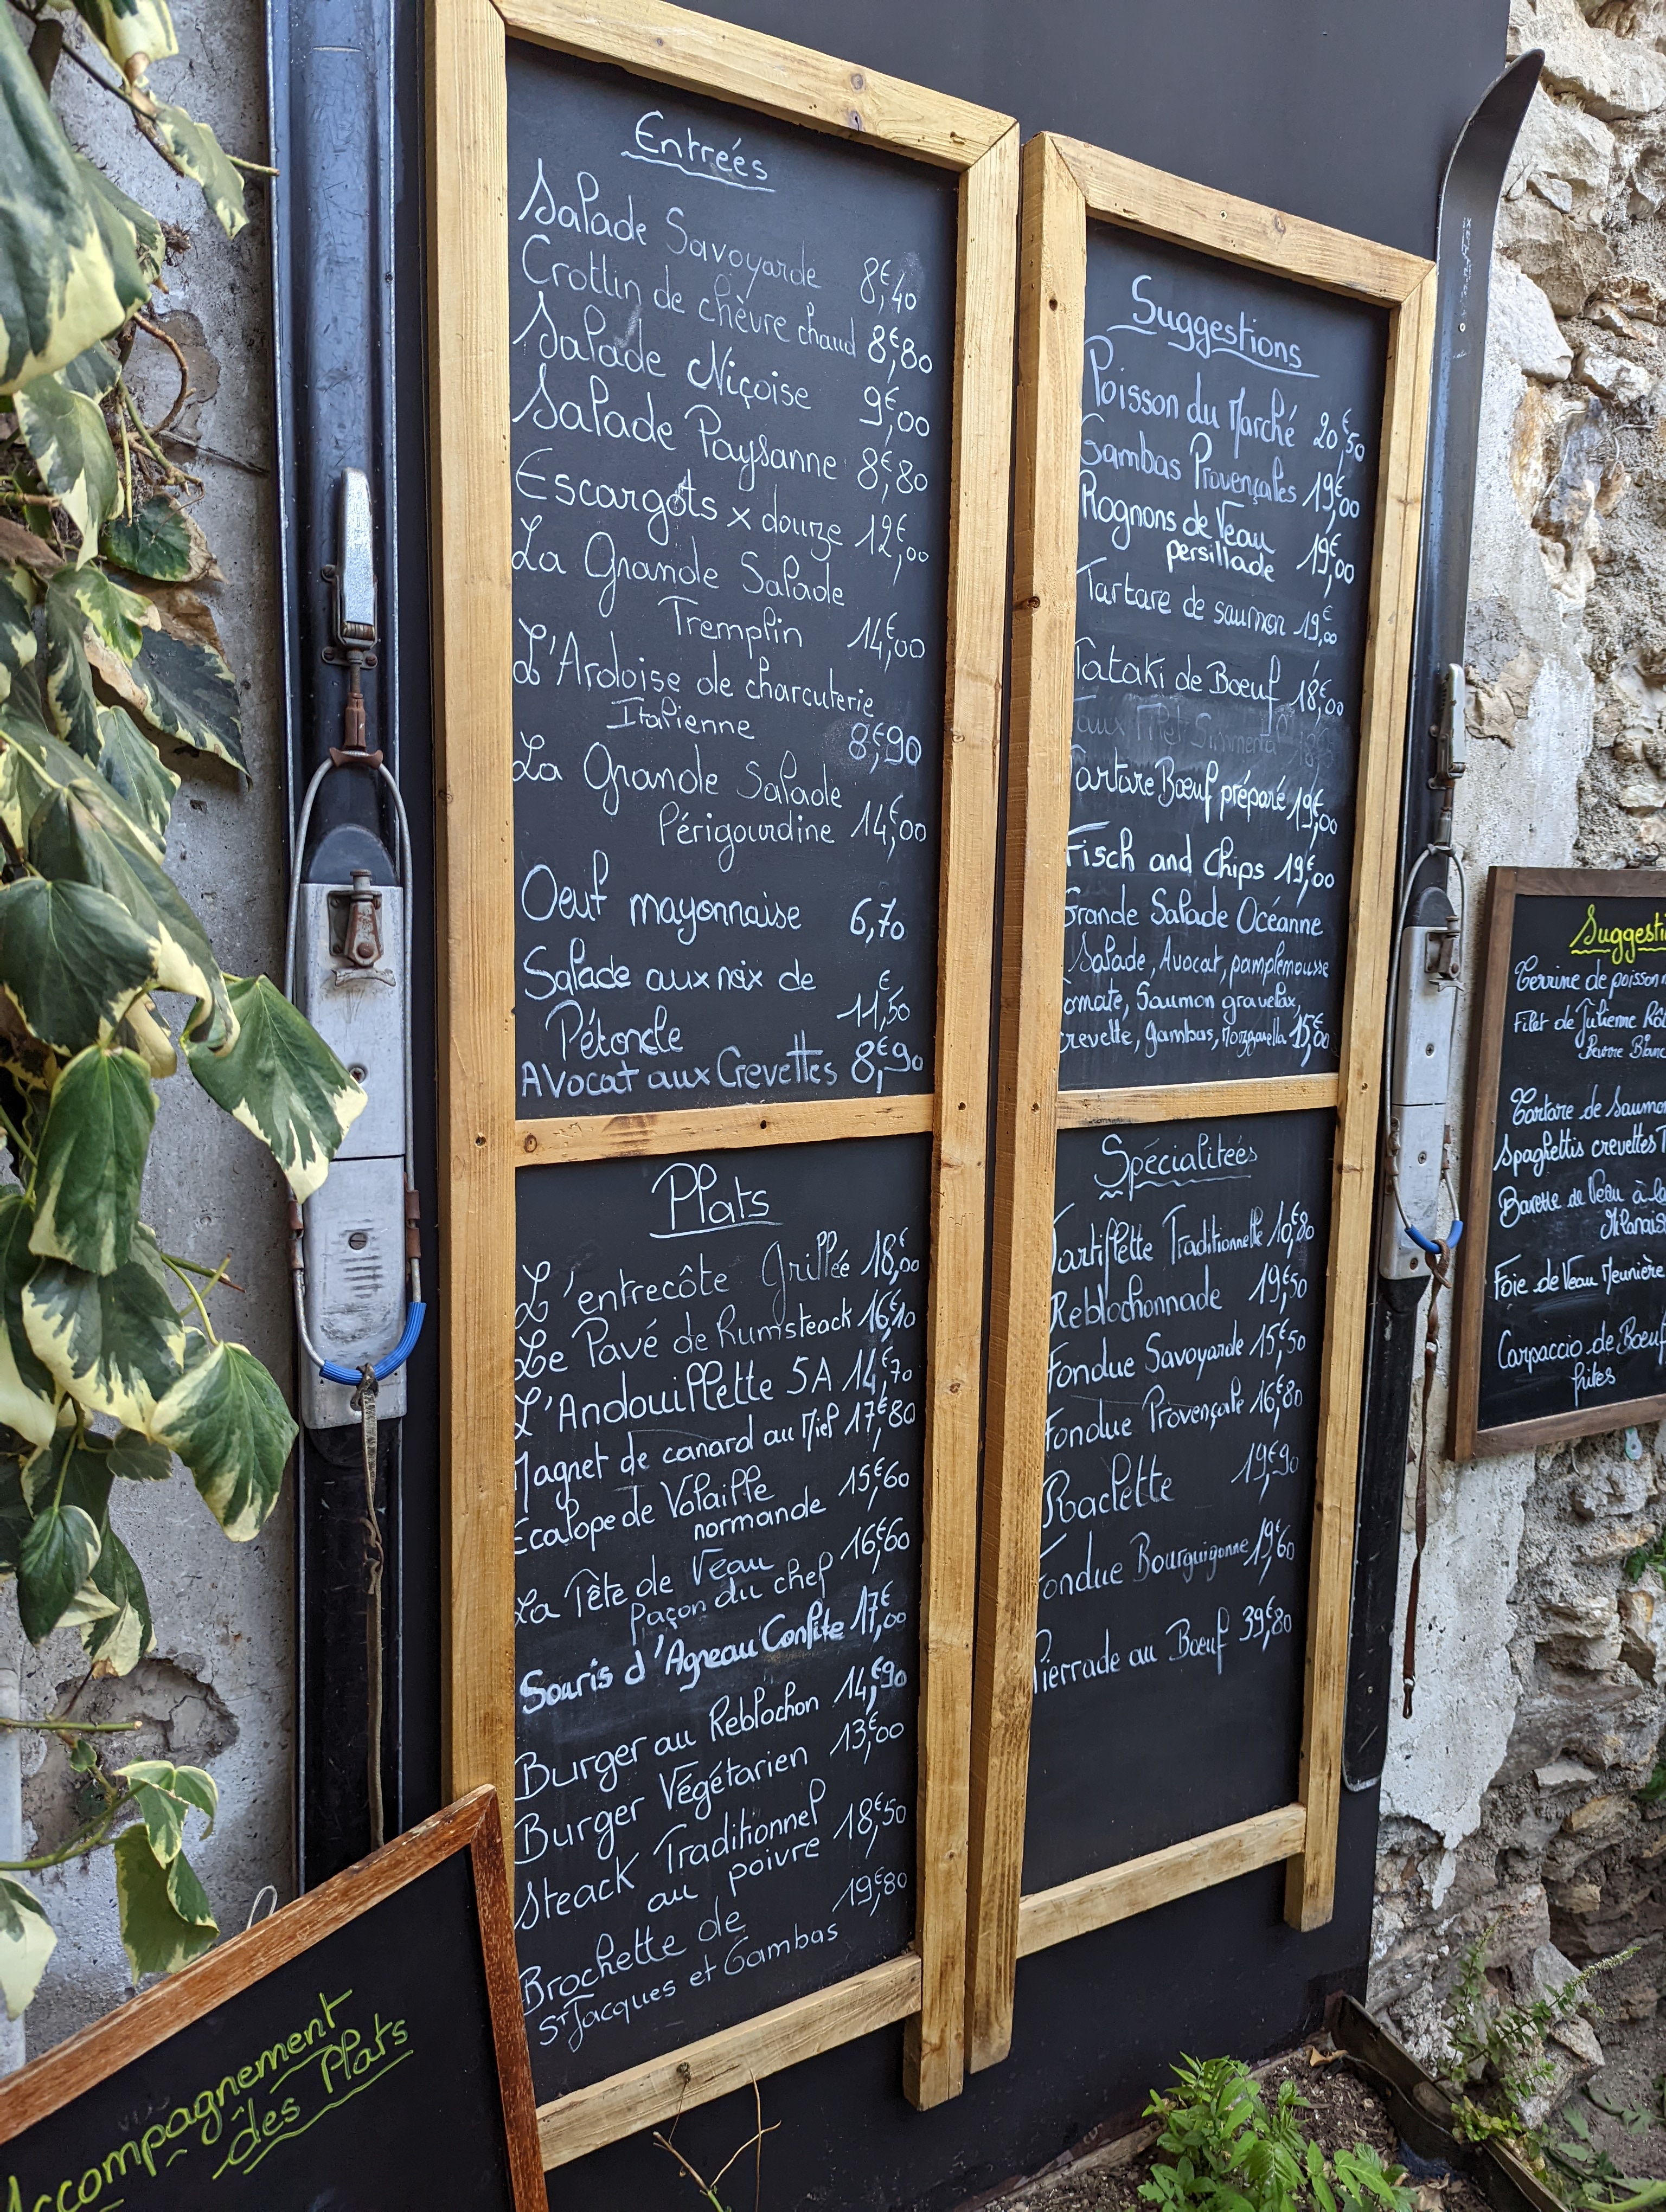 Entreés
Salade Savoyarde 8€,40
Crottin de chèvre chaud 8€,80
Salade Niçoise 9€,00
Salade Paysanne 8€,80
Escargots x douze 12€,00
La Grande Salade
Tremplin 14€,00
L'Ardoise de charcuterie
Italienne 8€,90
La Grande Salade
Périgourdine 14€,00
Oeuf mayonnaise 6,70
Salade aux noix de
Pétoncle 11€,50
Avocat aux Crevettes 8€,90
Plats
L'entrecôte Grillée 18€,00
Le Pavé de Rumsteack 16€,10
L'Andouillette 5A 14€,70
Magret de canard au Miel 17€,80
Escalope de Volaille
normande 15€,60
La Tête de Veau
façon du chef 16€,60
Souris d'Agneau Confite 17€,00
Burger au Reblochon 14€,90
Burger Végétarien 13€,00
Steack Traditionnel
au poivre 18€,50
Brochette de 19€,80
St Jacques et Gambas
Suggestions
Poisson du Marché 20€,50
Gambas Provençales 19€,00
Rognons de Veau
persillade 19€,00
Tartare de saumon 19€,00
Tataki de Boeuf 18€,00
Faux Filet Simmental 18€
Tartare Boeuf préparé 19€,00
Fisch and Chips 19€,00
Grande Salade Océanne
Salade, Avocat, pamplemousse
tomate, Saumon gravelax,
crevette, gambas, Mozzarella 15€,00
Spécialiteés
Tartiflette Traditionnelle 10€,80
Reblochonnade 19€,50
Fondue Savoyarde 15€,50
Fondue Provençale 16€,80
Raclette 19€,90
Fondue Bourguigonne 19€,60
Pierrade au Boeuf 39€,80
Suggesti
Terrine de poisson
Filet de Julienne Rô
Beurre Blanc
Tartare de Saumo
Spaghettis crevettes
Bavette de Veau à la
Milanais
Foie de Veau Meunière
Carpaccio de Boeuf
frites
Accompagnement
des Plats